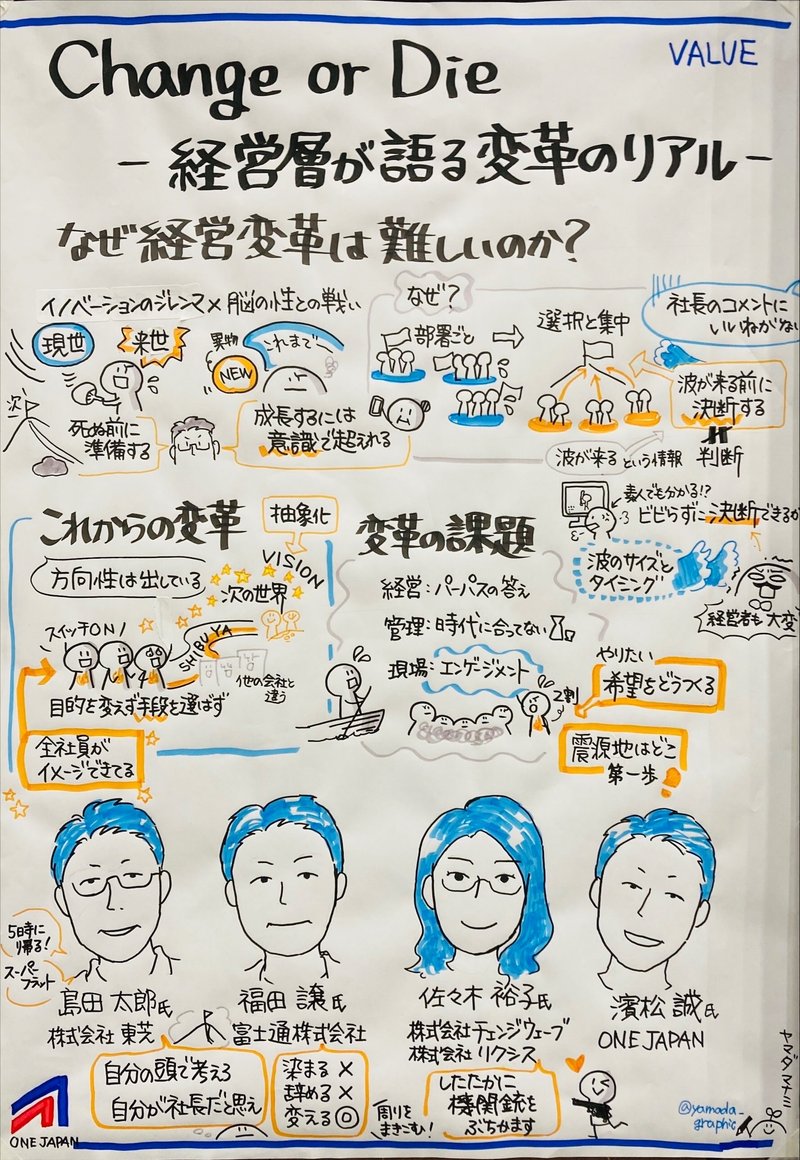 VALUE
Change or Die
- 経営層が語る変革のリアル -
なぜ経営変革は難しいのか?
イノベーションのジレンマ×脳の性との戦い
現世
来世
異物
NEW
これまで
死ぬ前に
準備する
成長するには
意識で超えれる
なぜ?
部署ごと
選択と集中
社長のコメントに
いいねがない
波が来る前に
決断する
判断
波が来るという情報
素人でも分かる!?
ビビらずに決断できるか
波のサイズと
タイミング
経営者も大変
これからの変革
抽象化
方向性は出している
VISION
次の世界
スイッチON!
SHIBUYA
他の会社と
違う
目的を変えず手段を選ばず
全社員が
イメージできてる
変革の課題
経営:パーパスの答え
管理:時代に合ってない
現場:エンゲージメント
2割
やりたい
希望をどうつくる
震源地はどこ
第一歩
5時に
帰る!
スーパー
フラット
島田 太郎氏
株式会社 東芝
福田 譲氏
富士通株式会社
佐々木 裕子氏
株式会社チェンジウェーブ
株式会社リクシス
濱松 誠氏
ONE JAPAN
自分の頭で考える
自分が社長だと思え
染まる ×
辞める ×
変える ◎
周りを
まきこむ!
したたかに
機関銃を
ぶちかます
ONE JAPAN
@yamada_
graphic